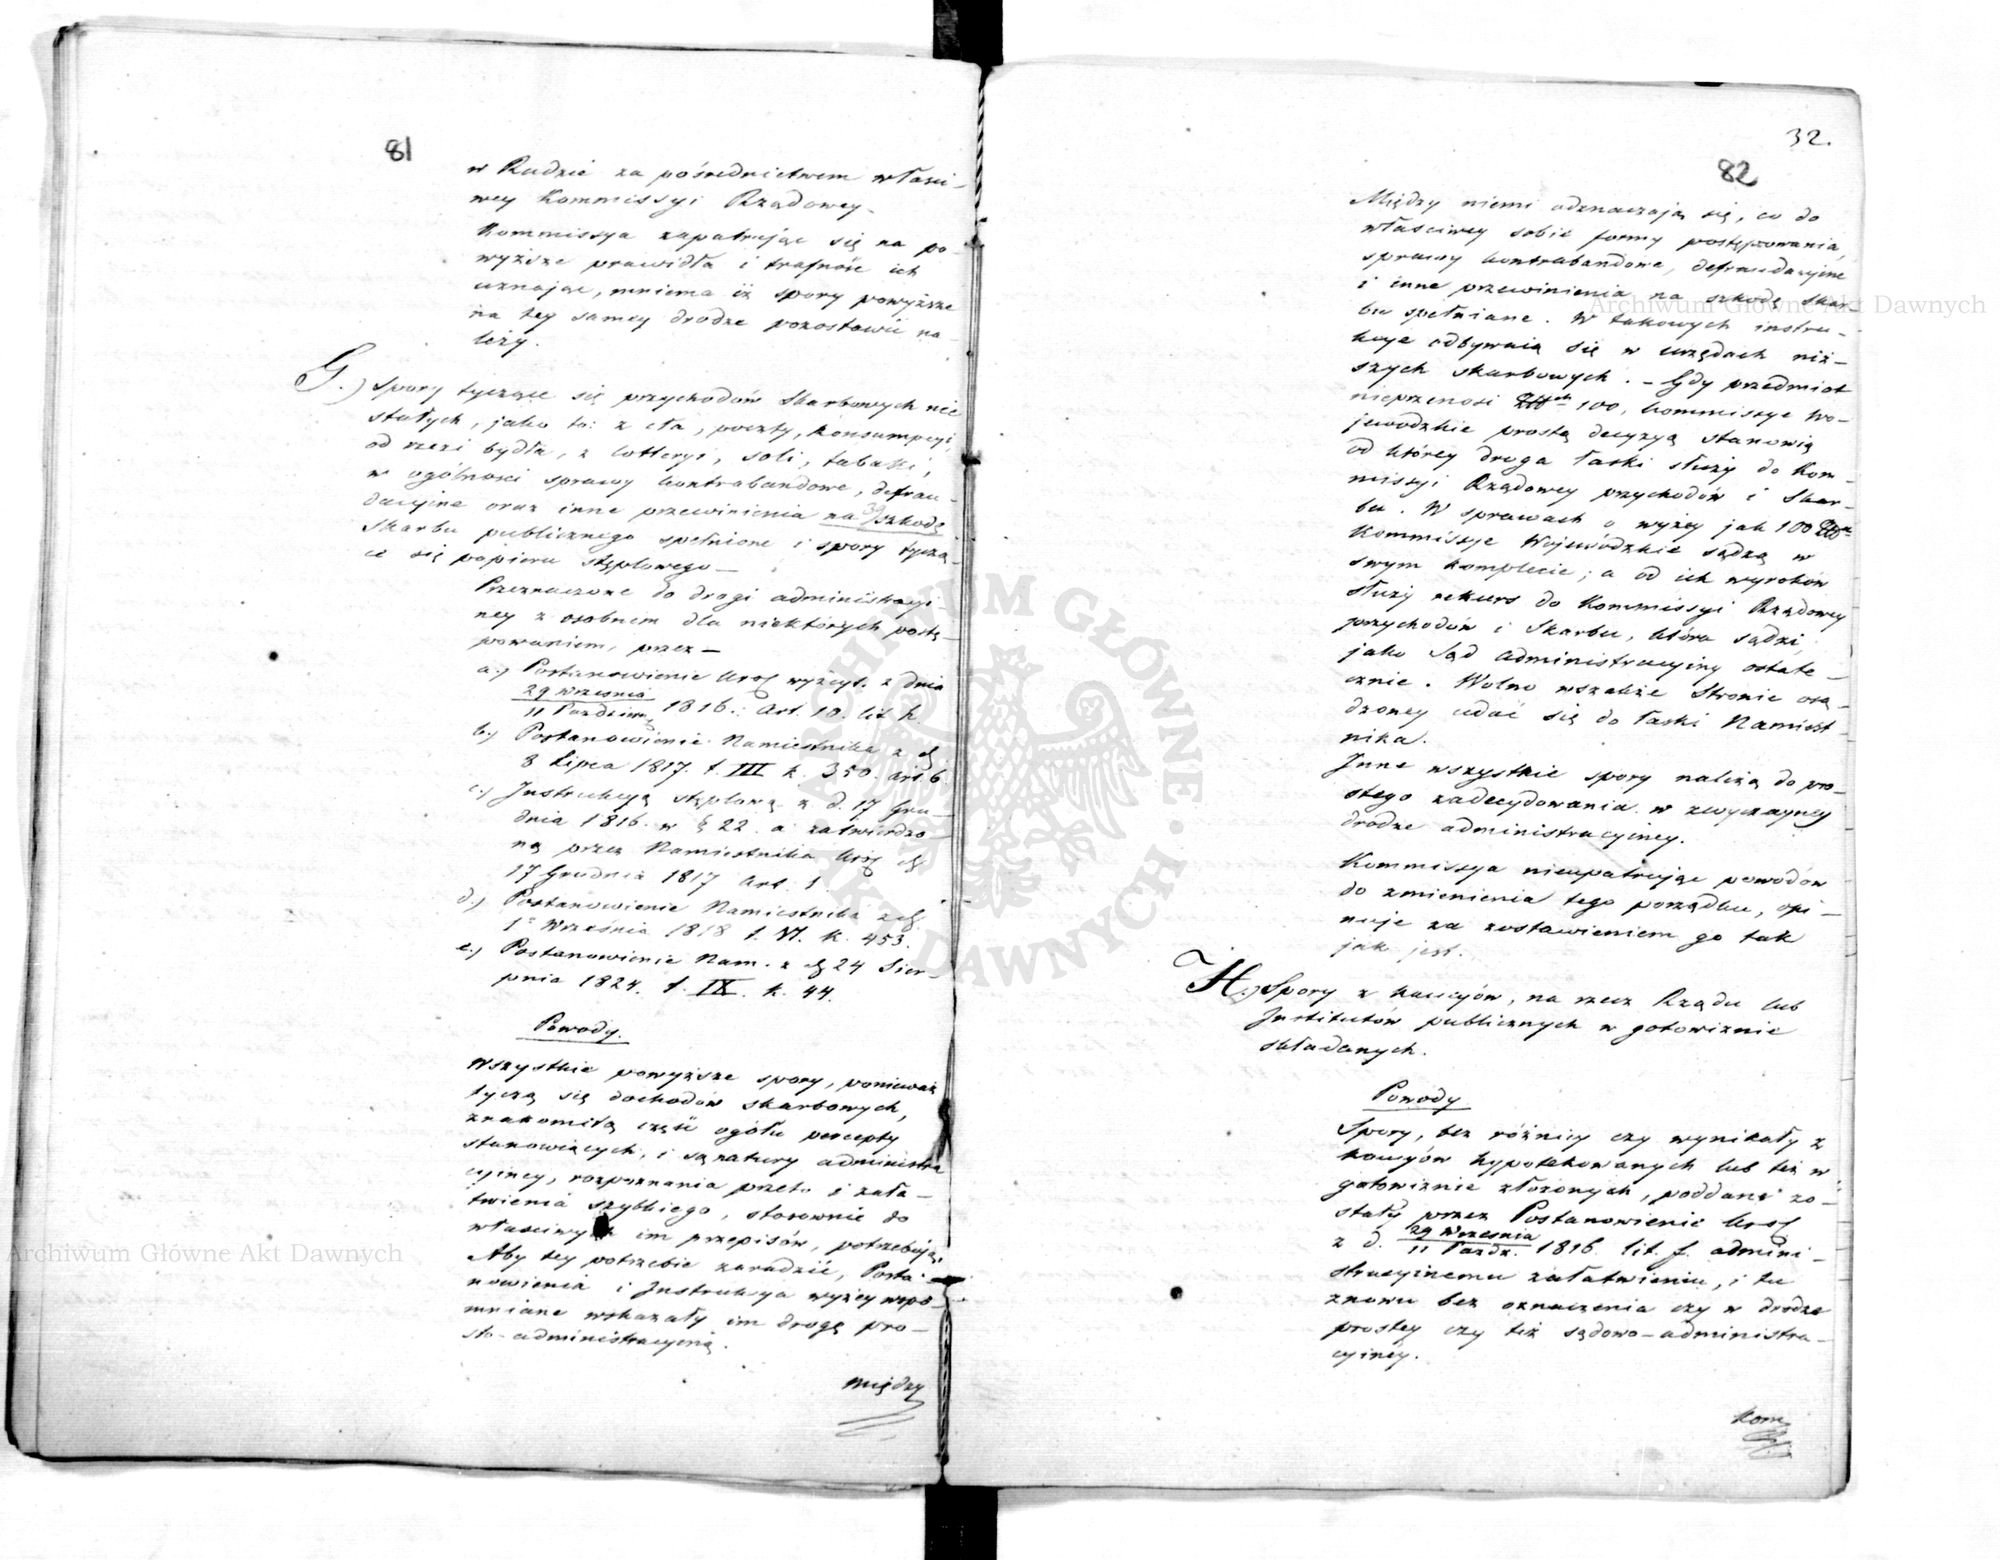 81
w Radzie za pośrednictwem właści-
wey Kommissyi Rządowey.
Kommissya zapatrując się na po-
wyższe prawidła i trafność ich
uznając, mniema iż spory powyższe
na tey samey drodze pozostawić na-
leży.
G.) Spory tyczące się przychodów Skarbowych nie
stałych, jako to: z cła, poczty, konsumpcyi,
od rzezi bydła, z lotteryi, soli, tabaki,
w ogólności sprawy kontrabandowe, defrau-
dacyine oraz inne przewinienia na szkodę
Skarbu publicznego spełnione i spory tyczą-
ce się papieru stęplowego—
Przeznaczone do drogi administracyi-
ney z osobnem dla niektórych postę-
powaniem, przez—
a.) Postanowienie Król. wyżey. z dnia
29 Września
11 Paździer. 1816. Art. 10. lit h
b.) Postanowienie Namiestnika z d.
8 Lipca 1817. t. III k. 350. art. 6
c.) Instrukcyą stęplową z d. 17 Gru-
dnia 1816. w § 22. a zatwierdzo-
ną przez Namiestnika Król. d.
17 Grudnia 1817 Art. 1.
d.) Postanowienie Namiestnika z d.
1º Września 1818 t. VI. k. 453.
e.) Postanowienie Nam. z d. 24 Sier-
pnia 1824. t. IX. k. 44.
Powody.
Wszystkie powyższe spory, ponieważ
tyczą się dochodów skarbowych,
znakomitą część ogółu percepty
stanowiących, i są natury administra
cyiney, rozpoznania przeto i zała-
twienia szybkiego, stosownie do
właściwych im przepisów, potrzebują.
Aby tey potrzebie zaradzić, Posta-
nowienia i Instrukcya wyżey wspo-
mniane wskazały im drogę pro-
sto-administracyiną.
między
32.
82
Między niemi odznaczają się, co do
właściwey sobie formy postępowania,
sprawy kontrabandowe, defraudacyine
i inne przewinienia na szkodę Skar-
bu spełniane. W takowych instru-
kcye odbywaią się w urzędach niż-
szych skarbowych. — Gdy przedmiot
nieprzenosi 100, Kommissye Wo-
jewódzkie prostą decyzyą stanowią
od którey droga łaski służy do Kom-
missyi Rządowey przychodów i Skar-
bu. W sprawach o wyżey jak 100
Kommissye Wojewódzkie sądzą w
swym komplecie; a od ich wyroków
służy rekurs do Kommissyi Rządowey
przychodów i Skarbu, która sądzi,
jako Sąd administracyiny ostate-
cznie. Wolno wszakże Stronie osą-
dzoney udać się do łaski Namiest-
nika.
Inne wszystkie spory należą do pro-
stego zadecydowania w zwyczayney
drodze administracyiney.
Kommissya nieupatrując powodów
do zmienienia tego porządku, opi-
niuje za zostawieniem go tak
jak jest.
H.) Spory z kaucyów, na rzecz Rządu lub
Institutów publicznych w gotowiznie
składanych.
Powody
Spory, bez różnicy czy wynikały z
kaucyów hypotekowanych lub też w
gotowiznie złożonych, poddane zo-
stały przez Postanowienie Król.
z d. 29 Września
11 Paźdz. 1816. lit. f. admini-
stracyinemu załatwieniu, i tu
znowu bez oznaczenia czy w drodze
prostey czy też sądowo-administra-
cyiney.
Kom
Archiwum Główne Akt Dawnych
Archiwum Główne Akt Dawnych
ARCHIWUM GŁÓWNE · AKT DAWNYCH ·